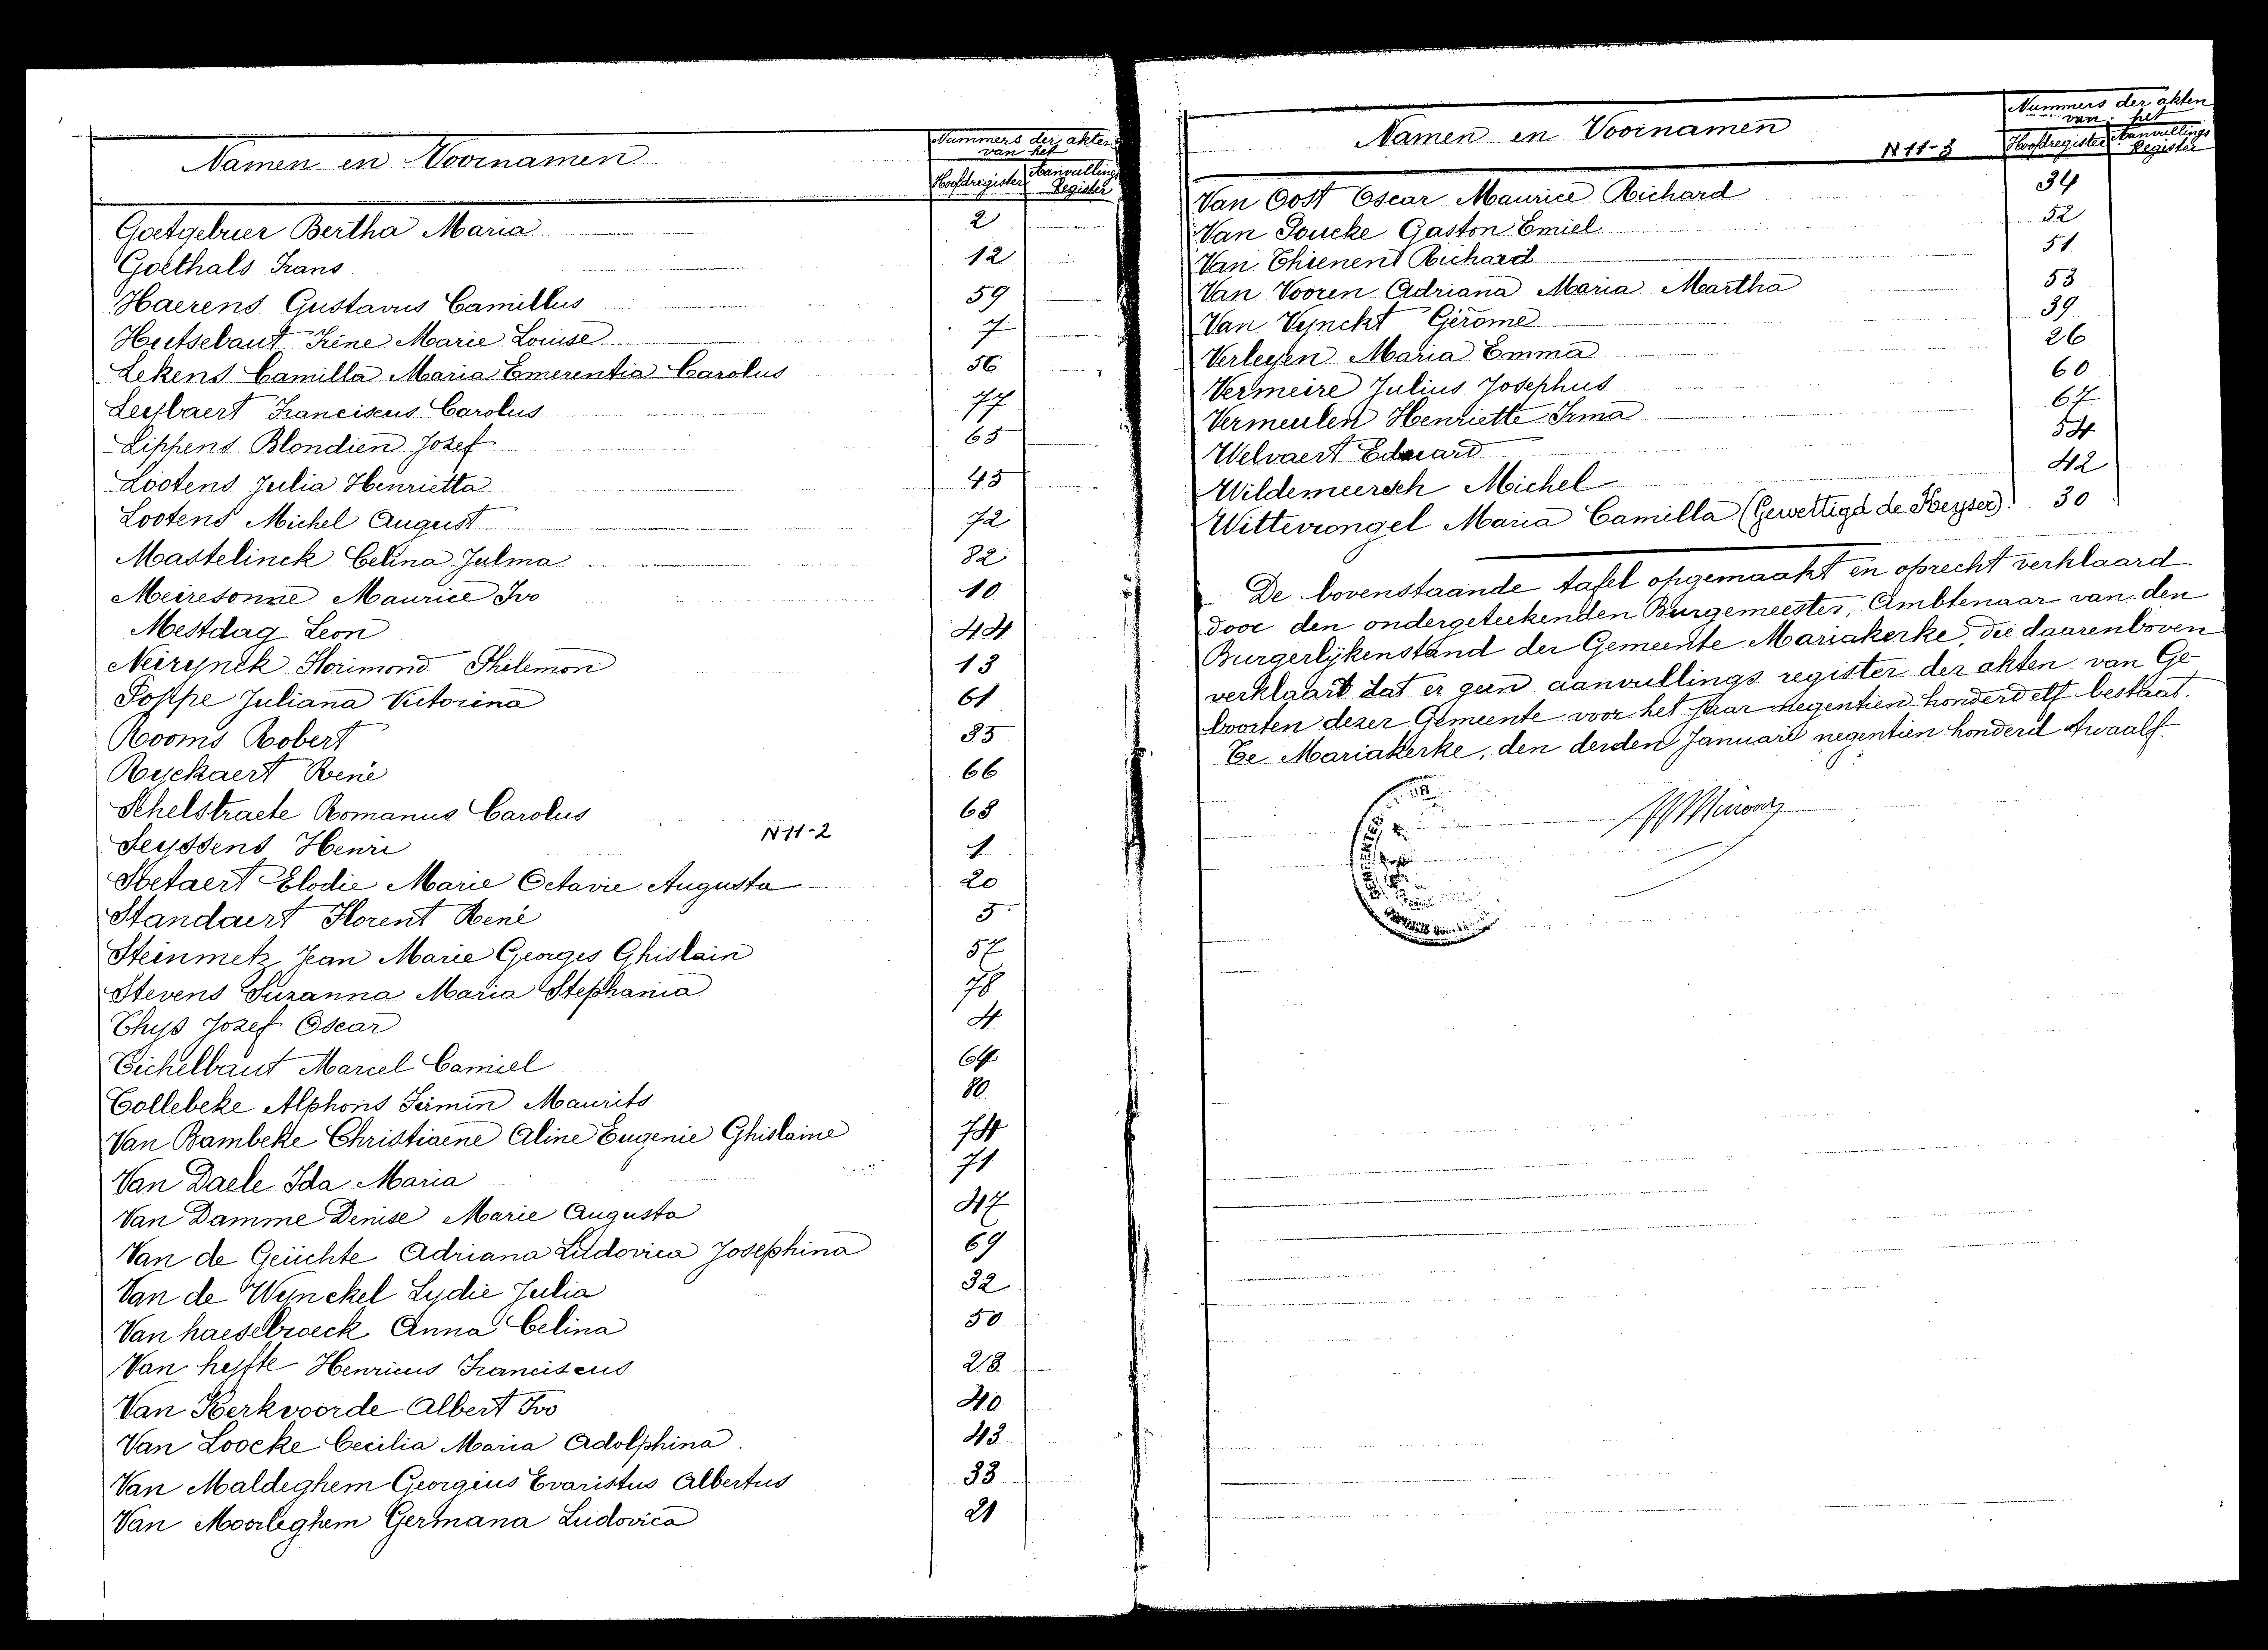 Namen en Voornamen
Nummers der akten
van het
Hoofdregister Aanvullings
Register
Goetgebuer Bertha Maria 2
Goethals Frans 12
Haerens Gustavus Camillus 59
Hutsebaut Irène Marie Louise 7
Lekens Camilla Maria Emerentia Carolus 56
Leybaert Franciscus Carolus 77
Lippens Blondien Jozef 65
Lootens Julia Henrietta 45
Lootens Michel August 72
Mastelinck Celina Julma 82
Meiresonne Maurice Ivo 10
Mestdag Leon 44
Neirynck Florimond Philemon 13
Poppe Juliana Victorina 61
Rooms Robert 35
Ryckaert René 66
Schelstraete Romanus Carolus 68
N 11-2
Seyssens Henri 1
Stetaert Elodie Marie Octavie Augusta 20
Standaert Florent René 5
Steinmetz Jean Marie Georges Ghislain 57
Stevens Suzanna Maria Stephania 78
Thys Jozef Oscar 4
Tichelbaut Marcel Camiel 64
Tollebeke Alphons Firmin Maurits 80
Van Bambeke Christiaene Aline Eugenie Ghislaine 74
Van Daele Ida Maria 71
Van Damme Denise Marie Augusta 47
Van de Geuchte Adriana Ludovica Josephina 69
Van de Wynckel Lydie Julia 32
Van haesebroeck Anna Celina 50
Van hyfte Henricus Franciscus 28
Van Kerkvoorde Albert Ivo 40
Van Loocke Cecilia Maria Adolphina. 43
Van Maldeghem Georgius Evaristus Albertus 33
Van Moorleghem Germana Ludovica 21
Namen en Voornamen
N 11-3
Nummers der akten
van het
Hoofdregister Aanvullings
Register
Van Oost Oscar Maurice Richard 34
Van Poucke Gaston Emiel 52
Van Thienen Richard 51
Van Vooren Adriana Maria Martha 53
Van Vynckt Gérome 39
Verleyen Maria Emma 26
Vermeire Julius Josephus 60
Vermeulen Henriette Irma 67
Welvaert Eduard 54
Wildemeersch Michel 42
Wittevrongel Maria Camilla (Gewettigd de Keyser). 30
De bovenstaande tafel opgemaakt en oprecht verklaard
door den ondergeteekenden Burgemeester, Ambtenaar van den
Burgerlijkenstand der Gemeente Mariakerke, die daarenboven
verklaart dat er geen aanvullings register der akten van Ge-
boorten dezer Gemeente voor het jaar negentien honderd elf bestaat.
Te Mariakerke, den derden Januari negentien honderd twaalf.